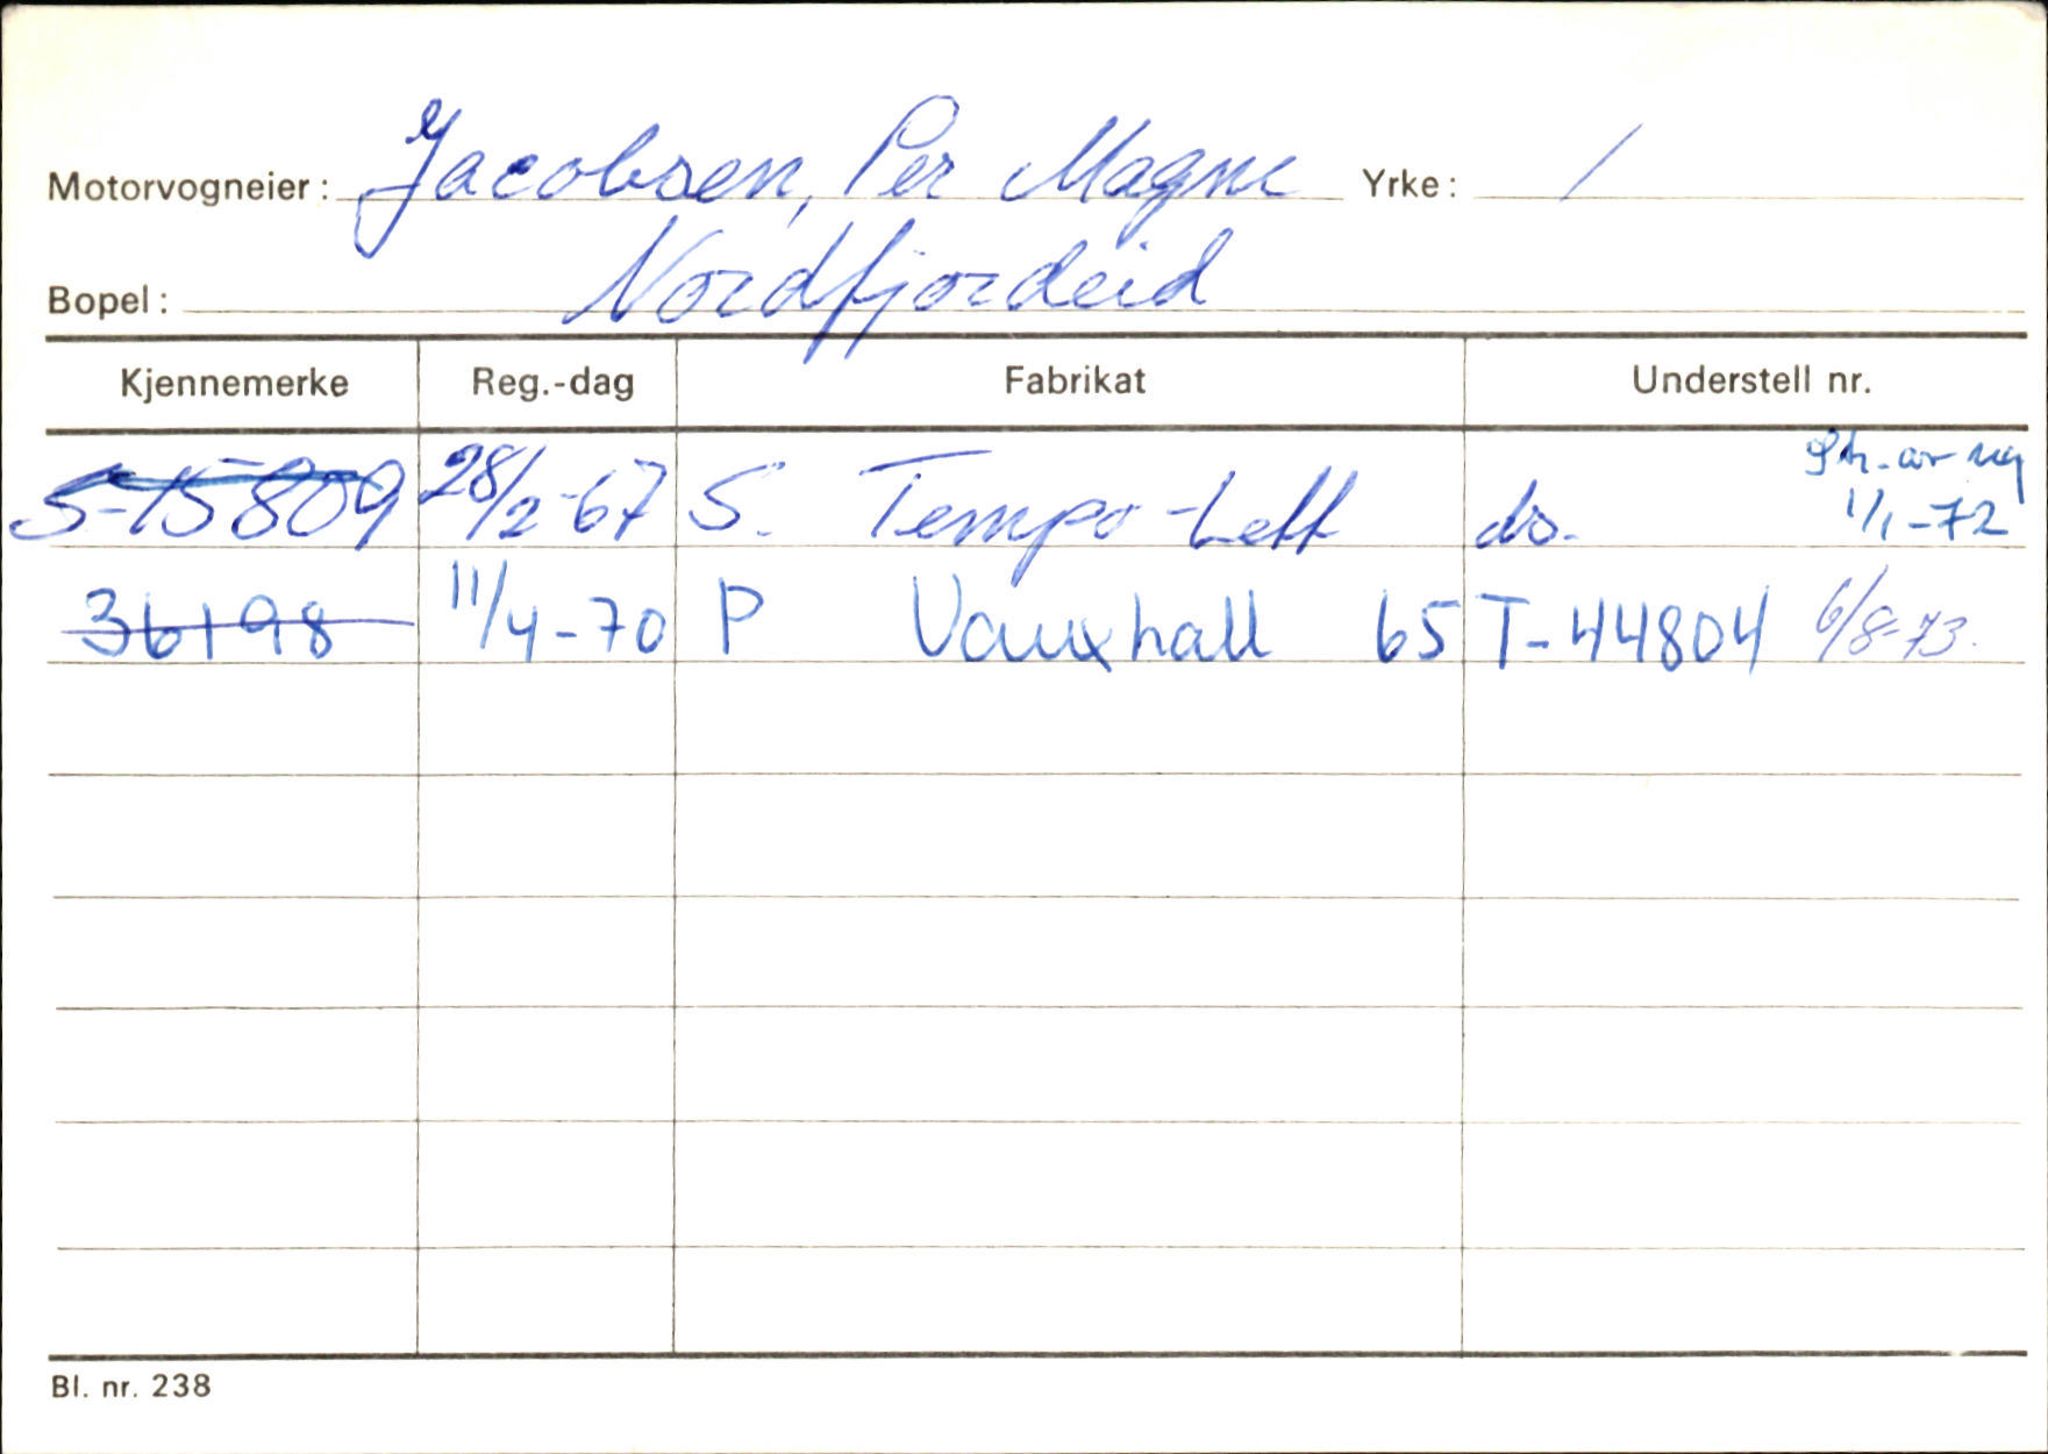 Motorvogneier: Jacobsen, Per Magne Yrke: /
Bopel: Nordfjordeid
Kjennemerke Reg.-dag Fabrikat Understell nr.
S-15809 28/2-67 S. Tempo-Lett do. Str. av reg 1/1-72
36198 11/4-70 P Vauxhall 65 T-44804 6/8-73.
Bl. nr. 238